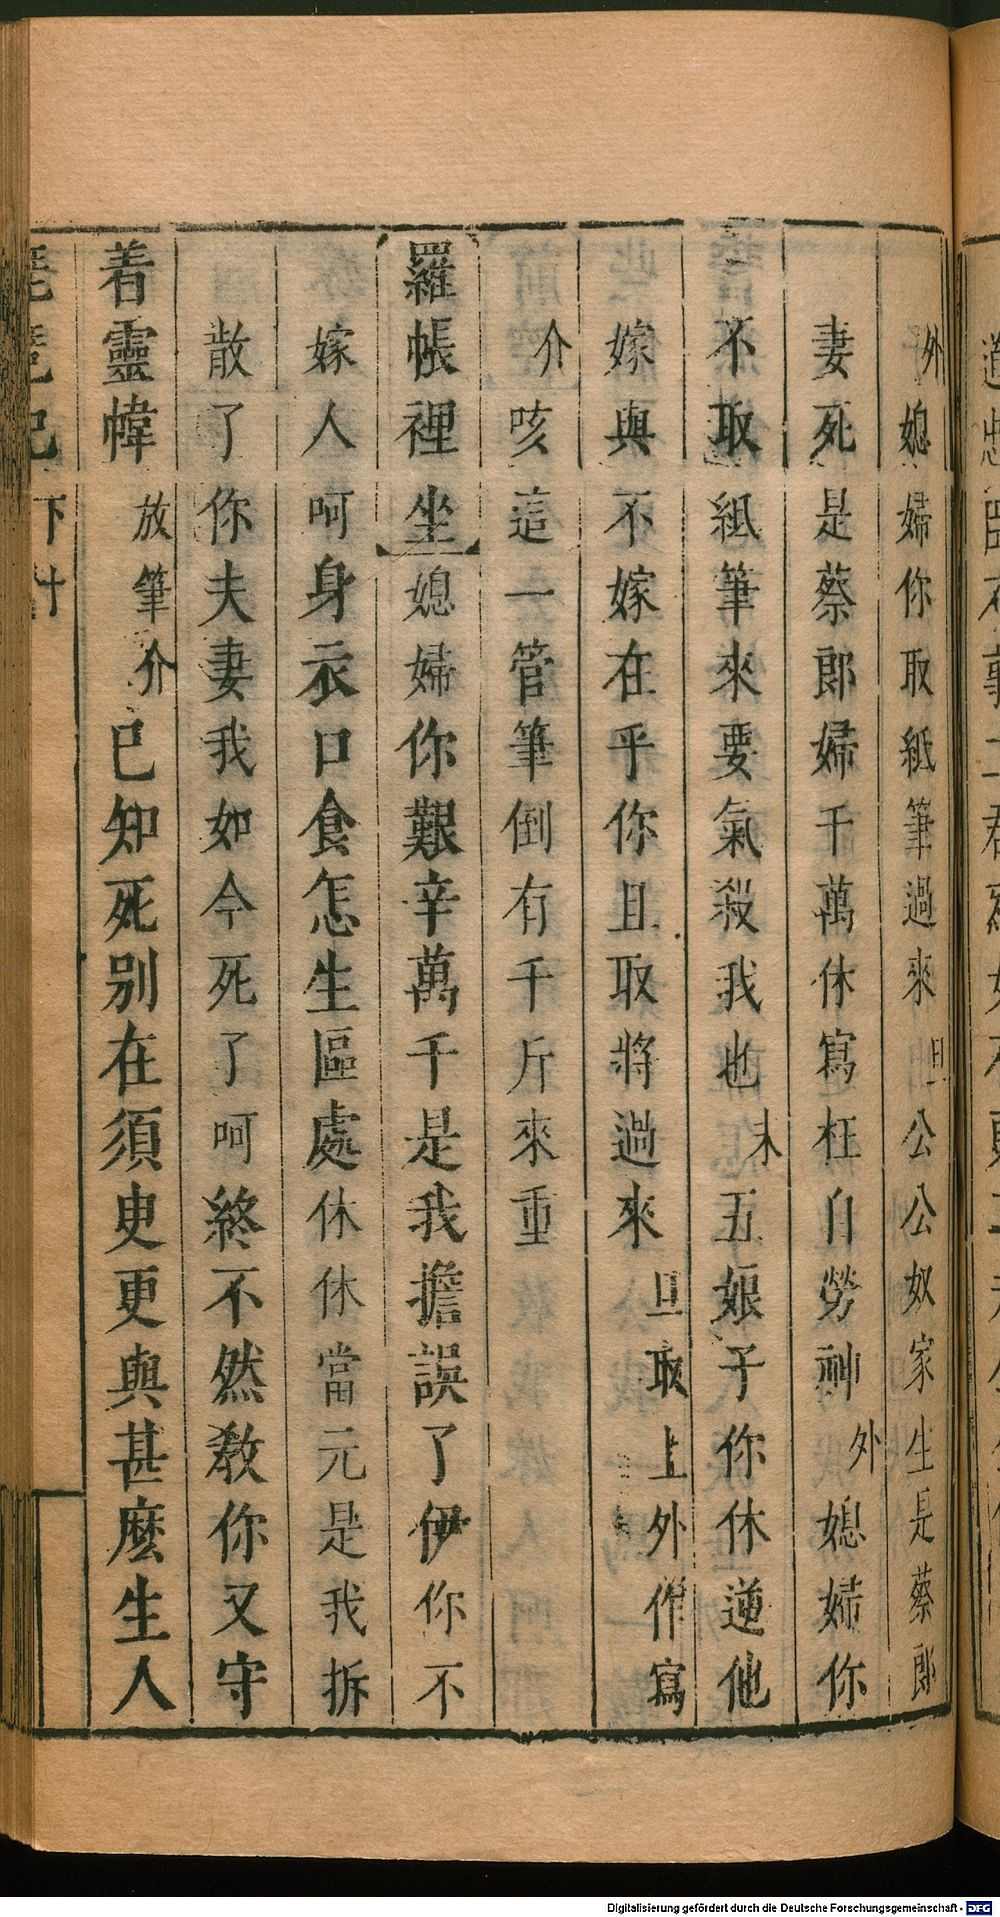 外媳婦你取紙筆過來旦公公奴家生是蔡郎
妻死是蔡郎婦千萬休寫枉自勞神外媳婦你
不取紙筆來要氣殺我也末五娘子你休逆他
嫁與不嫁在乎你且取將過來旦取上外作寫
介咳這一管筆倒有千斤來重
羅帳裡坐媳婦你艱辛萬千是我擔誤了伊你不
嫁人呵身衣口食怎生區處休休當元是我拆
散了你夫妻我如今死了呵終不然教你又守
着靈幃放筆介已知死别在須臾更與甚麼生人
琵琶記 下
Digitalisierung gefördert durch die Deutsche Forschungsgemeinschaft - DFG